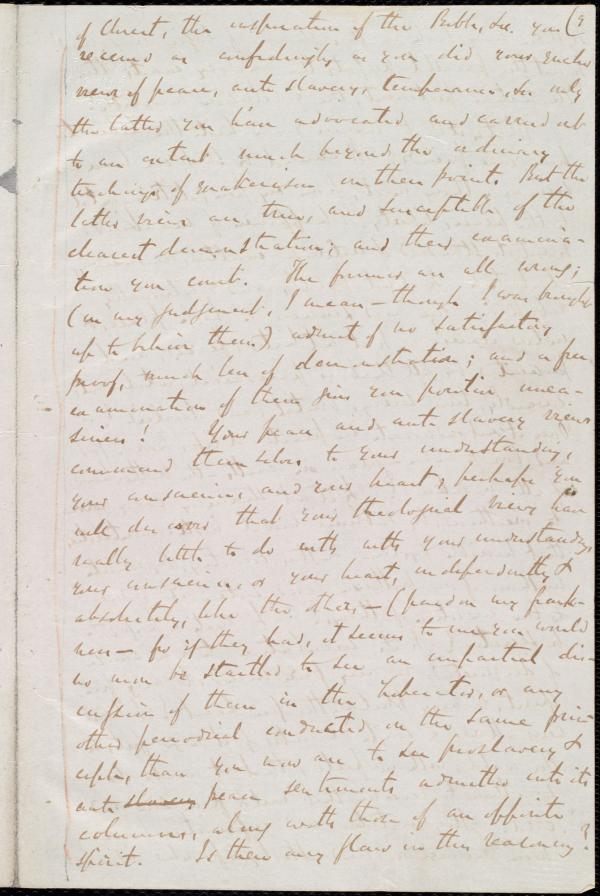 of Christ, the inspiration of the Bible, &c. you (9
received as confidingly as you did your Quaker
views of peace, anti-slavery, temperance, &c. only
the latter you have advocated and carried out
to an extent much beyond the ordinary
teachings of Quakerism on these points. But the
latter views are true, and susceptible of the
clearest demonstration; and their examina-
tion you court. The former are all wrong;
(in my judgment, I mean — though I was brought
up to believe them) admit of no satisfactory
proof, much less of demonstration; and a free
examination of them gives you positive unea-
siness! Your peace and anti slavery views
commend themselves to your understanding,
your conscience, and your heart; perhaps you
will discover that your theological views have
really little to do with your understanding,
your conscience, or your heart, independently &
absolutely, like the others — (pardon my frank-
ness — for if they had, it seems to me you would
no more be startled to see an impartial dis-
cussion of them in the Liberator, or any
other periodical conducted on the same prin-
ciple, than you now are to see proslavery &
anti slavery peace sentiments admitted into its
columns, along with those of an opposite
spirit. Is there any flaw in this reasoning?